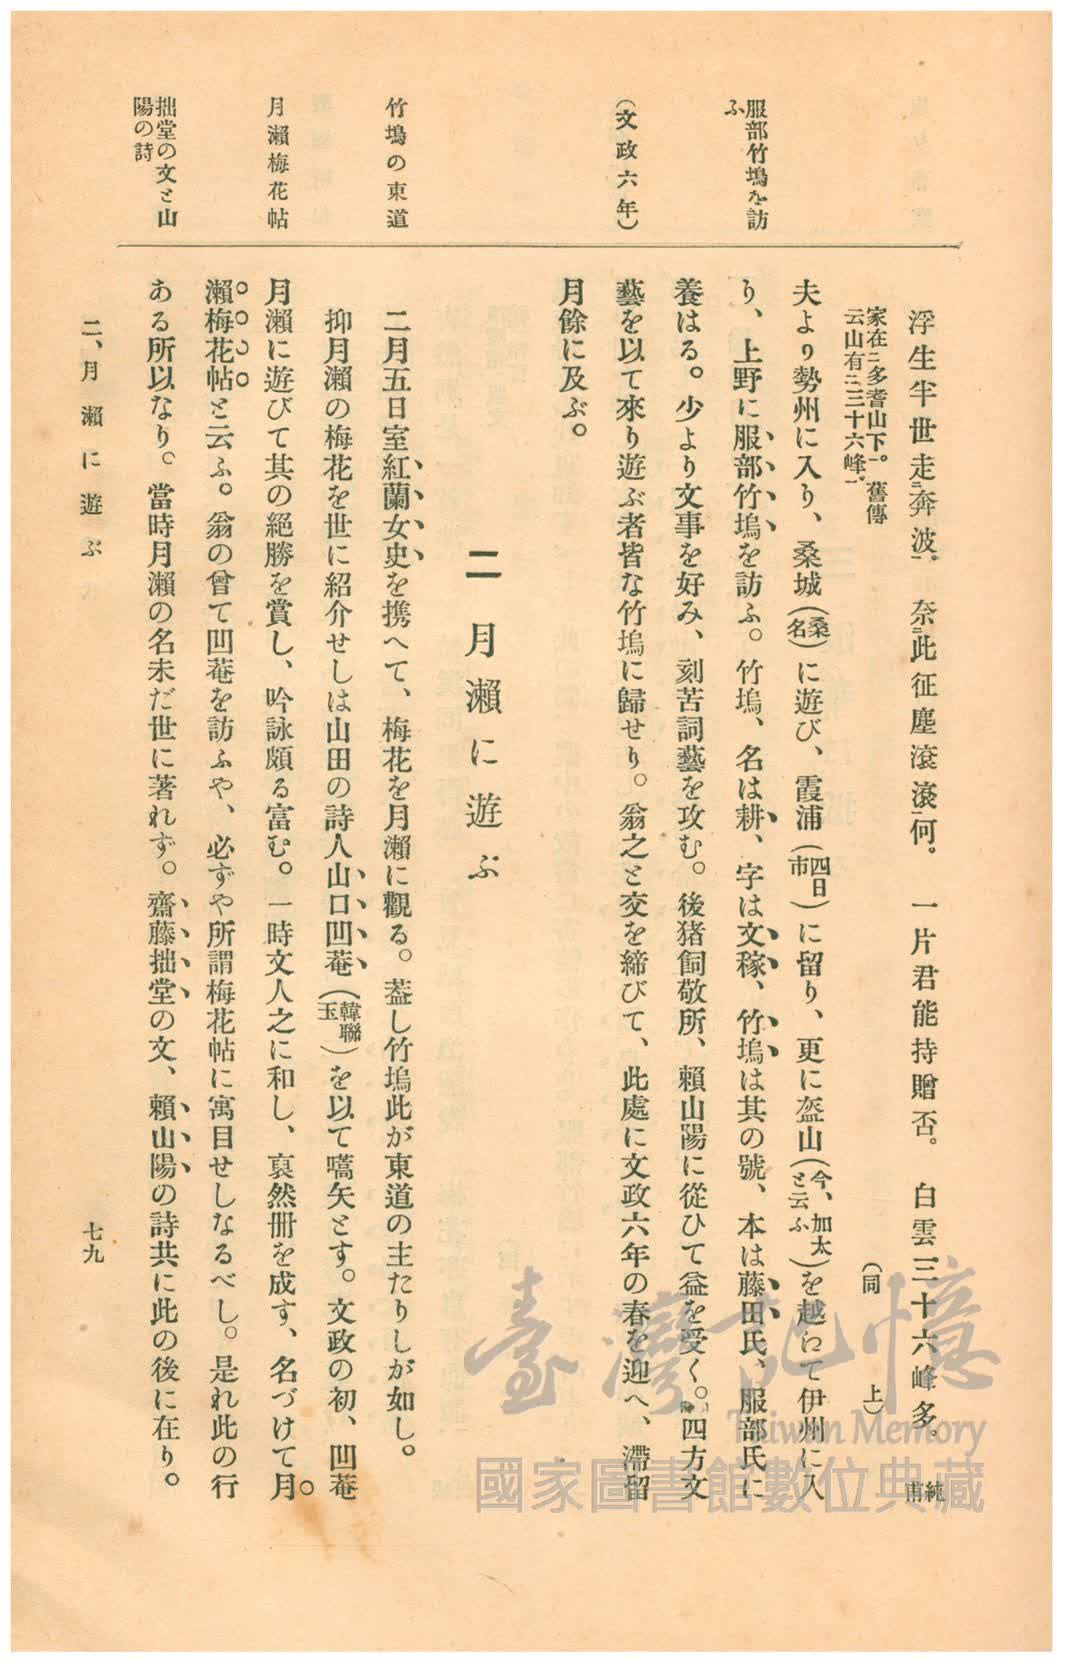 服部竹塢を訪
ふ
(文政六年)
竹塢の東道
月瀨梅花帖
拙堂の文と山
陽の詩
浮生半世走奔波。奈此征塵滾滾何。一片君能持贈否。白雲三十六峰多。純甫
家在多耆山下。舊傳
云山有三十六峰。
(同上)
夫より勢州に入り、桑城(桑名)に遊び、霞浦(四日市)に留り、更に盔山(今、加太と云ふ)を越にて伊州に入
り、上野に服部竹塢を訪ふ。竹塢、名は耕、字は文稼、竹塢は其の號、本は藤田氏、服部氏に
養はる。少より文事を好み、刻苦詞藝を攻む。後猪飼敬所、賴山陽に從ひて益を受く。四方文
藝を以て來り遊ぶ者皆な竹塢に歸せり。翁之と交を締びて、此處に文政六年の春を迎へ、滯留
月餘に及ぶ。
二 月瀨に遊ぶ
二月五日室紅蘭女史を携へて、梅花を月瀨に觀る。葢し竹塢此が東道の主たりしが如し。
抑月瀨の梅花を世に紹介せしは山田の詩人山口凹菴(韓聯玉)を以て嚆矢とす。文政の初、凹菴
月瀨に遊びて其の絕勝を賞し、吟詠頗る富む。一時文人之に和し、裒然册を成す、名づけて月
瀨梅花帖と云ふ。翁の曾て凹菴を訪ふや、必ずや所謂梅花帖に寓目せしなるべし。是れ此の行
ある所以なり。當時月瀨の名未だ世に著れず。齋藤拙堂の文、賴山陽の詩共に此の後に在り。
二、月瀨に遊ぶ
七九
臺灣記憶
Taiwan Memory
國家圖書館數位典藏